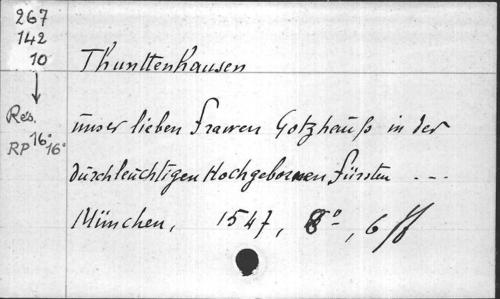 267
142
10
Thunttenhausen
↓
Res.
RP 16° 16°
unser lieben Frawen Gotzhauß in der
durchleuchtigen Hochgebornen Fürsten ---
München, 1547, 8°, 6 ff